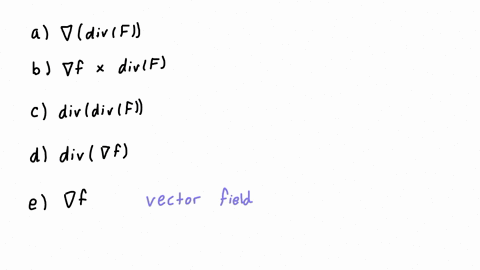 a) ∇(div(F))
b) ∇f × div(F)
c) div(div(F))
d) div(∇f)
e) ∇f vector field